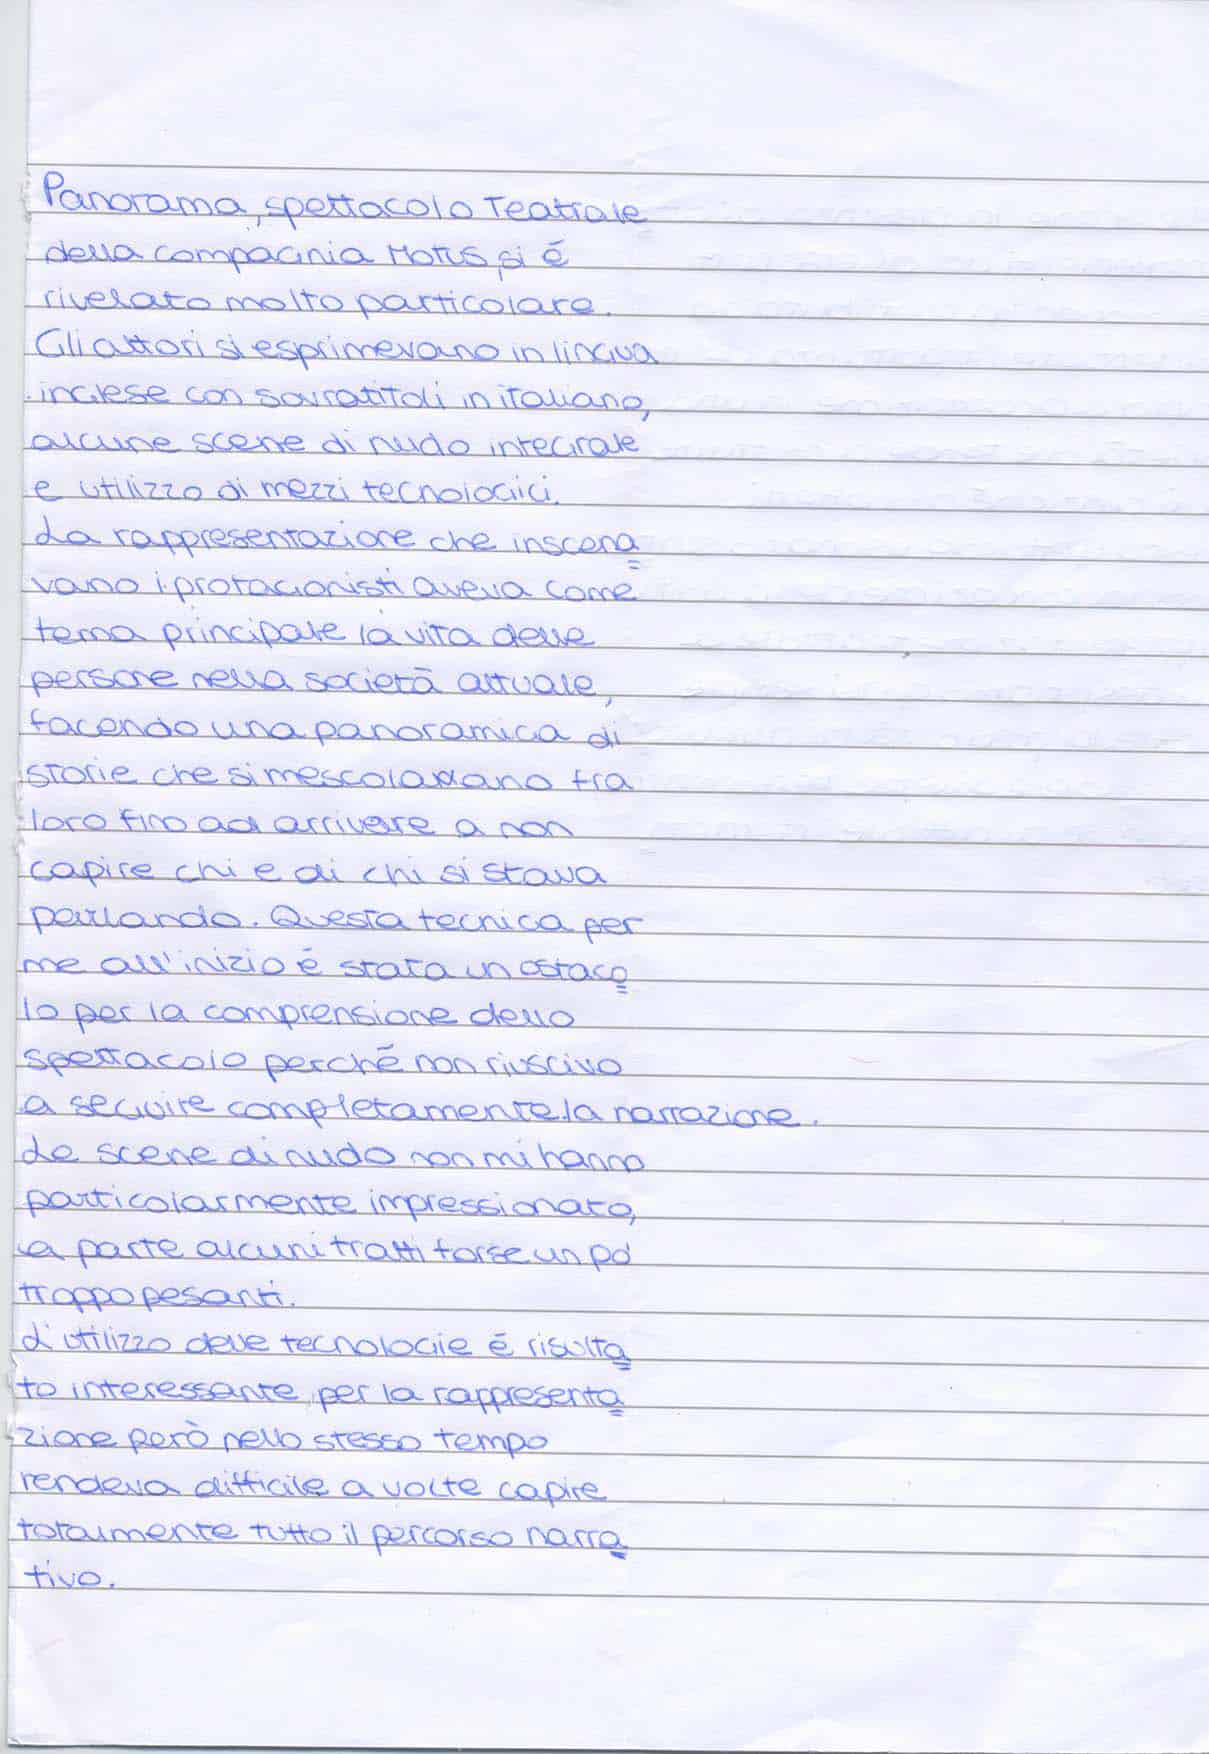 Panorama, spettacolo Teatrale
della compagnia Motus, si é
rivelato molto particolare.
Gli attori si esprimevano in lingua
inglese con sovratitoli in italiano,
alcune scene di nudo integrale
e utilizzo di mezzi tecnologici.
La rappresentazione che inscena=
vano i protagonisti aveva come
tema principale la vita delle
persone nella società attuale,
facendo una panoramica di
storie che si mescolavano fra
loro fino ad arrivare a non
capire chi e di chi si stava
parlando. Questa tecnica per
me all'inizio é stata un ostaco=
lo per la comprensione dello
spettacolo perché non riuscivo
a seguire completamente la narrazione.
Le scene di nudo non mi hanno
particolarmente impressionato,
a parte alcuni tratti forse un pò
troppo pesanti.
L'utilizzo delle tecnologie é risulta=
to interessante per la rappresenta=
zione però nello stesso tempo
rendeva difficile a volte capire
totalmente tutto il percorso narra=
tivo.